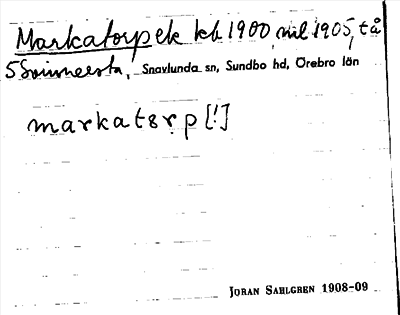 Markatorp ek kb 1900, mil 1905, tå
5 Svinnersta, Snavlunda sn, Sundbo hd, Örebro lön
markatorp [!]
JORAN SAHLGREN 1908-09